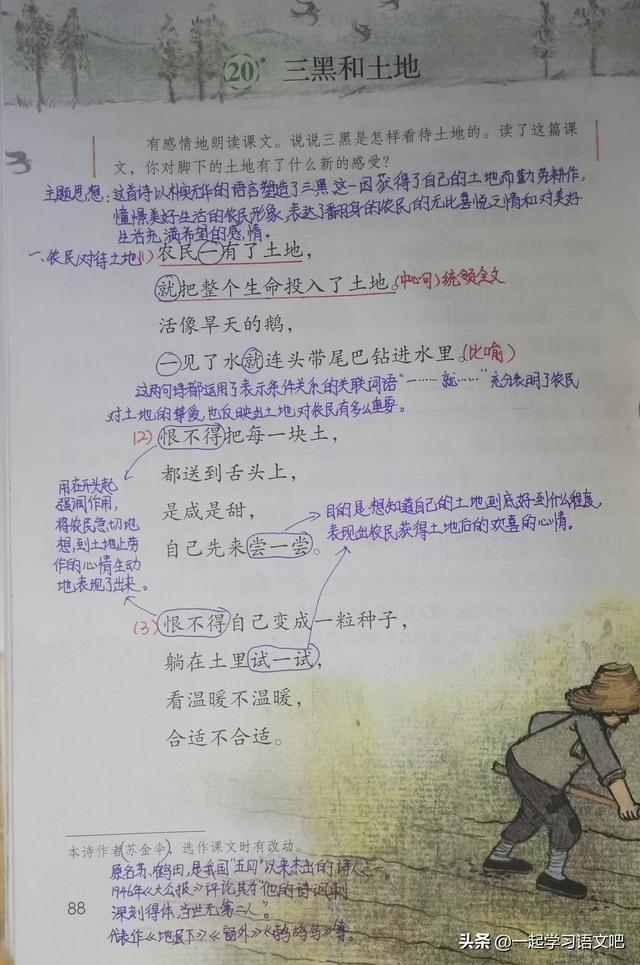 20* 三黑和土地
有感情地朗读课文。说说三黑是怎样看待土地的。读了这篇课
文，你对脚下的土地有了什么新的感受？
主题思想：这首诗以朴实无华的语言塑造了三黑这一因获得了自己的土地而勤劳耕作，
憧憬美好生活的农民形象，表达了翻身的农民的无比喜悦之情和对美好
生活充满希望的感情。
一、农民对待土地(1) 农民一有了土地，
就把整个生命投入了土地。(中心句)统领全文
活像旱天的鹅，
一见了水就连头带尾巴钻进水里。(比喻)
这两句诗都运用了表示条件关系的关联词语“一……就……”充分表明了农民
对土地的挚爱，也反映出土地对农民有多么重要。
(2) 恨不得把每一块土，
都送到舌头上，
是咸是甜，
自己先来尝一尝。
用在开头起
强调作用，
将农民急切地
想到土地上劳
作的心情生动
地表现了出来。
目的是想知道自己的土地到底好到什么程度，
表现出农民获得土地后的欢喜的心情。
(3) 恨不得自己变成一粒种子，
躺在土里试一试，
看温暖不温暖，
合适不合适。
本诗作者苏金伞，选作课文时有改动。
原名苏鹤田，是我国“五四”以来杰出的诗人之一。
1946年《大公报》评论其为“他的诗讽刺
深刻得体，当世无第二人”。
代表作《地层下》《窗外》《鹁鸪鸟》等
88
头条 @一起学习语文吧